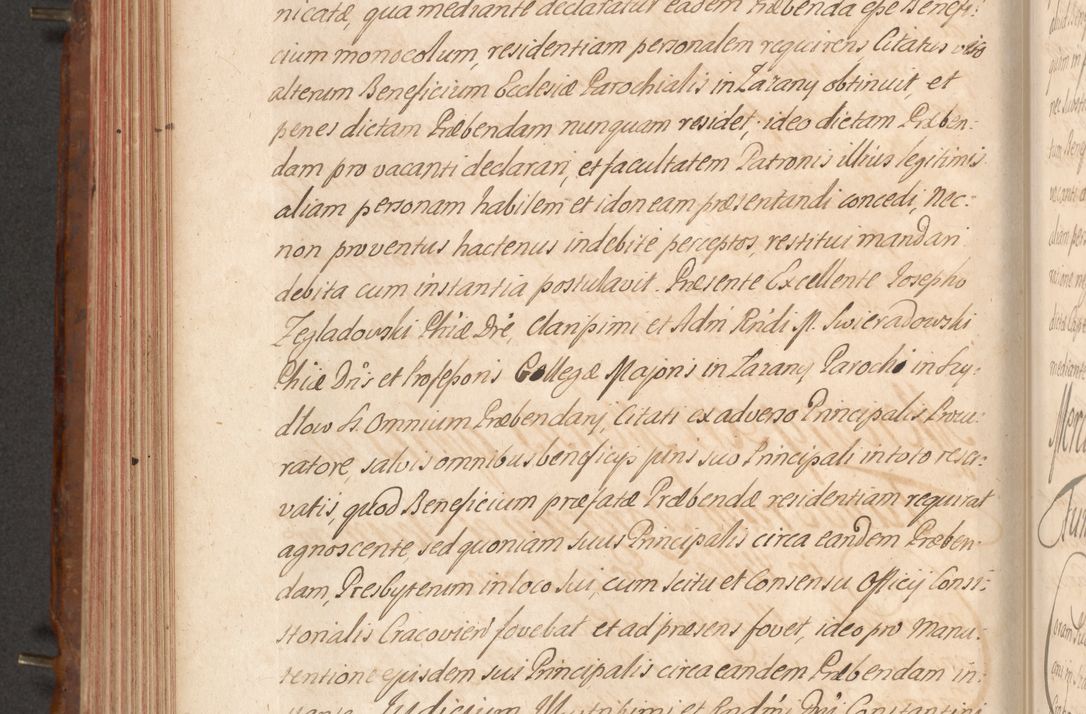 nicatæ, qua mediante declaratur eadem Præbenda esse Benefi-
cium monocolum, residentiam personalem requirens Citatus vero
alterum Beneficium Ecclesiæ Parochialis in Zarany obtinuit, et
penes dictam Præbendam nunquam residet, ideo dictam Præben:
dam pro vacanti declarari, et facultatem Patronis illius legitimis
aliam personam habilem et idoneam præsentandi concedi, Nec:
non proventus hactenus indebite perceptos, restitui mandari
debita cum instantia postulavit. Præsente Excellente Josepho
Zegladowski Phiæ Dre, Clarissimi et Adm Rndi M. Swieradowski
Phiæ Dris et Professoris Collegæ Majoris in Zarany Parochi in Szy:
dlow SS. Omnium Præbendarij, Citati ex adverso Principalis Procu:
ratore, salvis omnibus beneficijs juris suo Principali in toto reser:
vatis, quod Beneficium præfatæ Præbendæ residentiam requirat
agnoscente, sed quoniam suus Principalis circa eandem Præben
dam, Presbyterum in loco sui, cum scitu et Consensu Officij Consi:
storialis Cracovien fovebat et ad præsens fovet, ideo pro Manu:
tentione ejusdem sui Principalis circa eandem Præbendam in:
Judicium Illustrissimi et Rndmi Dni Constantini